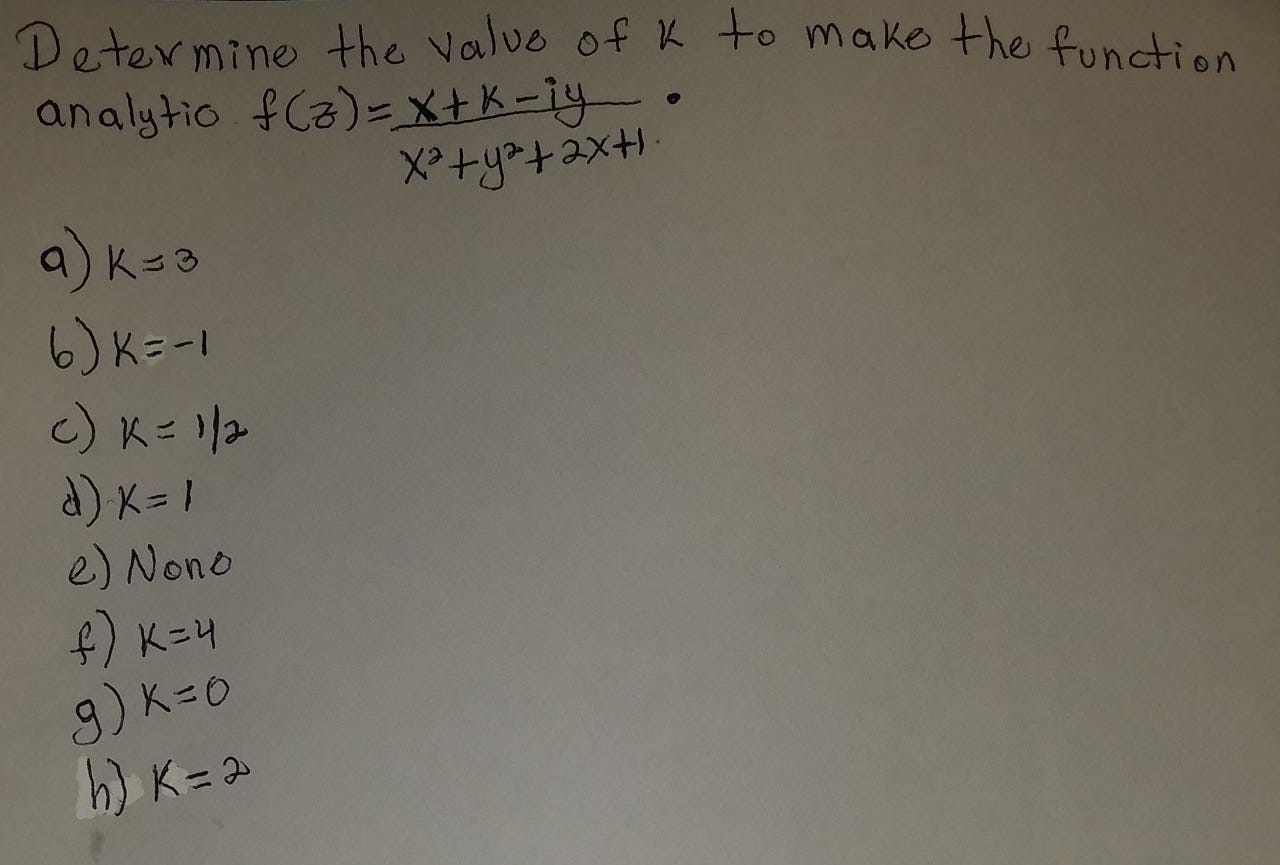 Determine the value of k to make the function
analytic f(z) = x+k-iy / x²+y²+2x+1.
a) k=3
b) k=-1
c) k=1/2
d) k=1
e) None
f) k=4
g) k=0
h) k=2